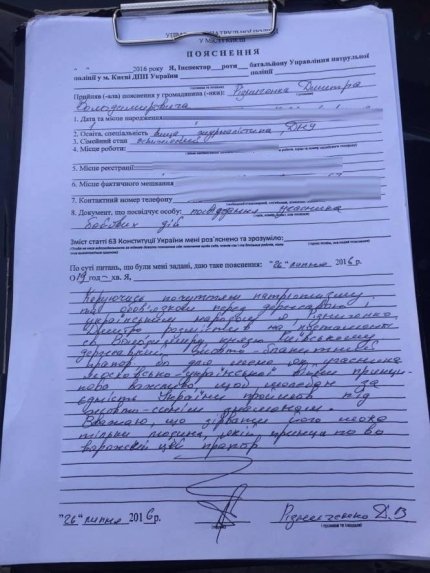 У МІСТІ КИЄВІ
ПОЯСНЕННЯ
" " 2016 року Я, Інспектор роти батальйону Управління патрульної
поліції у м. Києві ДПП України
Прийняв (-ала) пояснення у громадянина (-нки): Різниченка Дмитра
Володимировича
1. Дата та місце народження
2. Освіта, спеціальність вища журналістика ДНУ
3. Сімейний стан
4. Місце роботи:
5. Місце реєстрації
6. Місце фактичного мешкання
7. Контактний номер телефону
8. Документ, що посвідчує особу: посвідчення учасника
бойових дій
Зміст статті 63 Конституції України мені роз'яснено та зрозуміло:
По суті питань, що були мені задані, даю таке пояснення: "26" липня 2016 р.
О 19 год – хв. Я,
Керуючись почуттям патріотизму
та обов'язком перед державою і
українським народом я Різниченко
Дмитро розмістив на постаменті
св. Володимиру, князю Київському
державний жовто-блакитний
прапор, бо для мене як учасника
московсько-української війни принци-
пово важливо, щоб молебен за
єдність України пройшов під
жовто-синім знаменом.
Вважаю, що зірвати його може
тільки людина, якій принципово
ворожий цей прапор
"26" липня 2016 р.
Різниченко Д.В